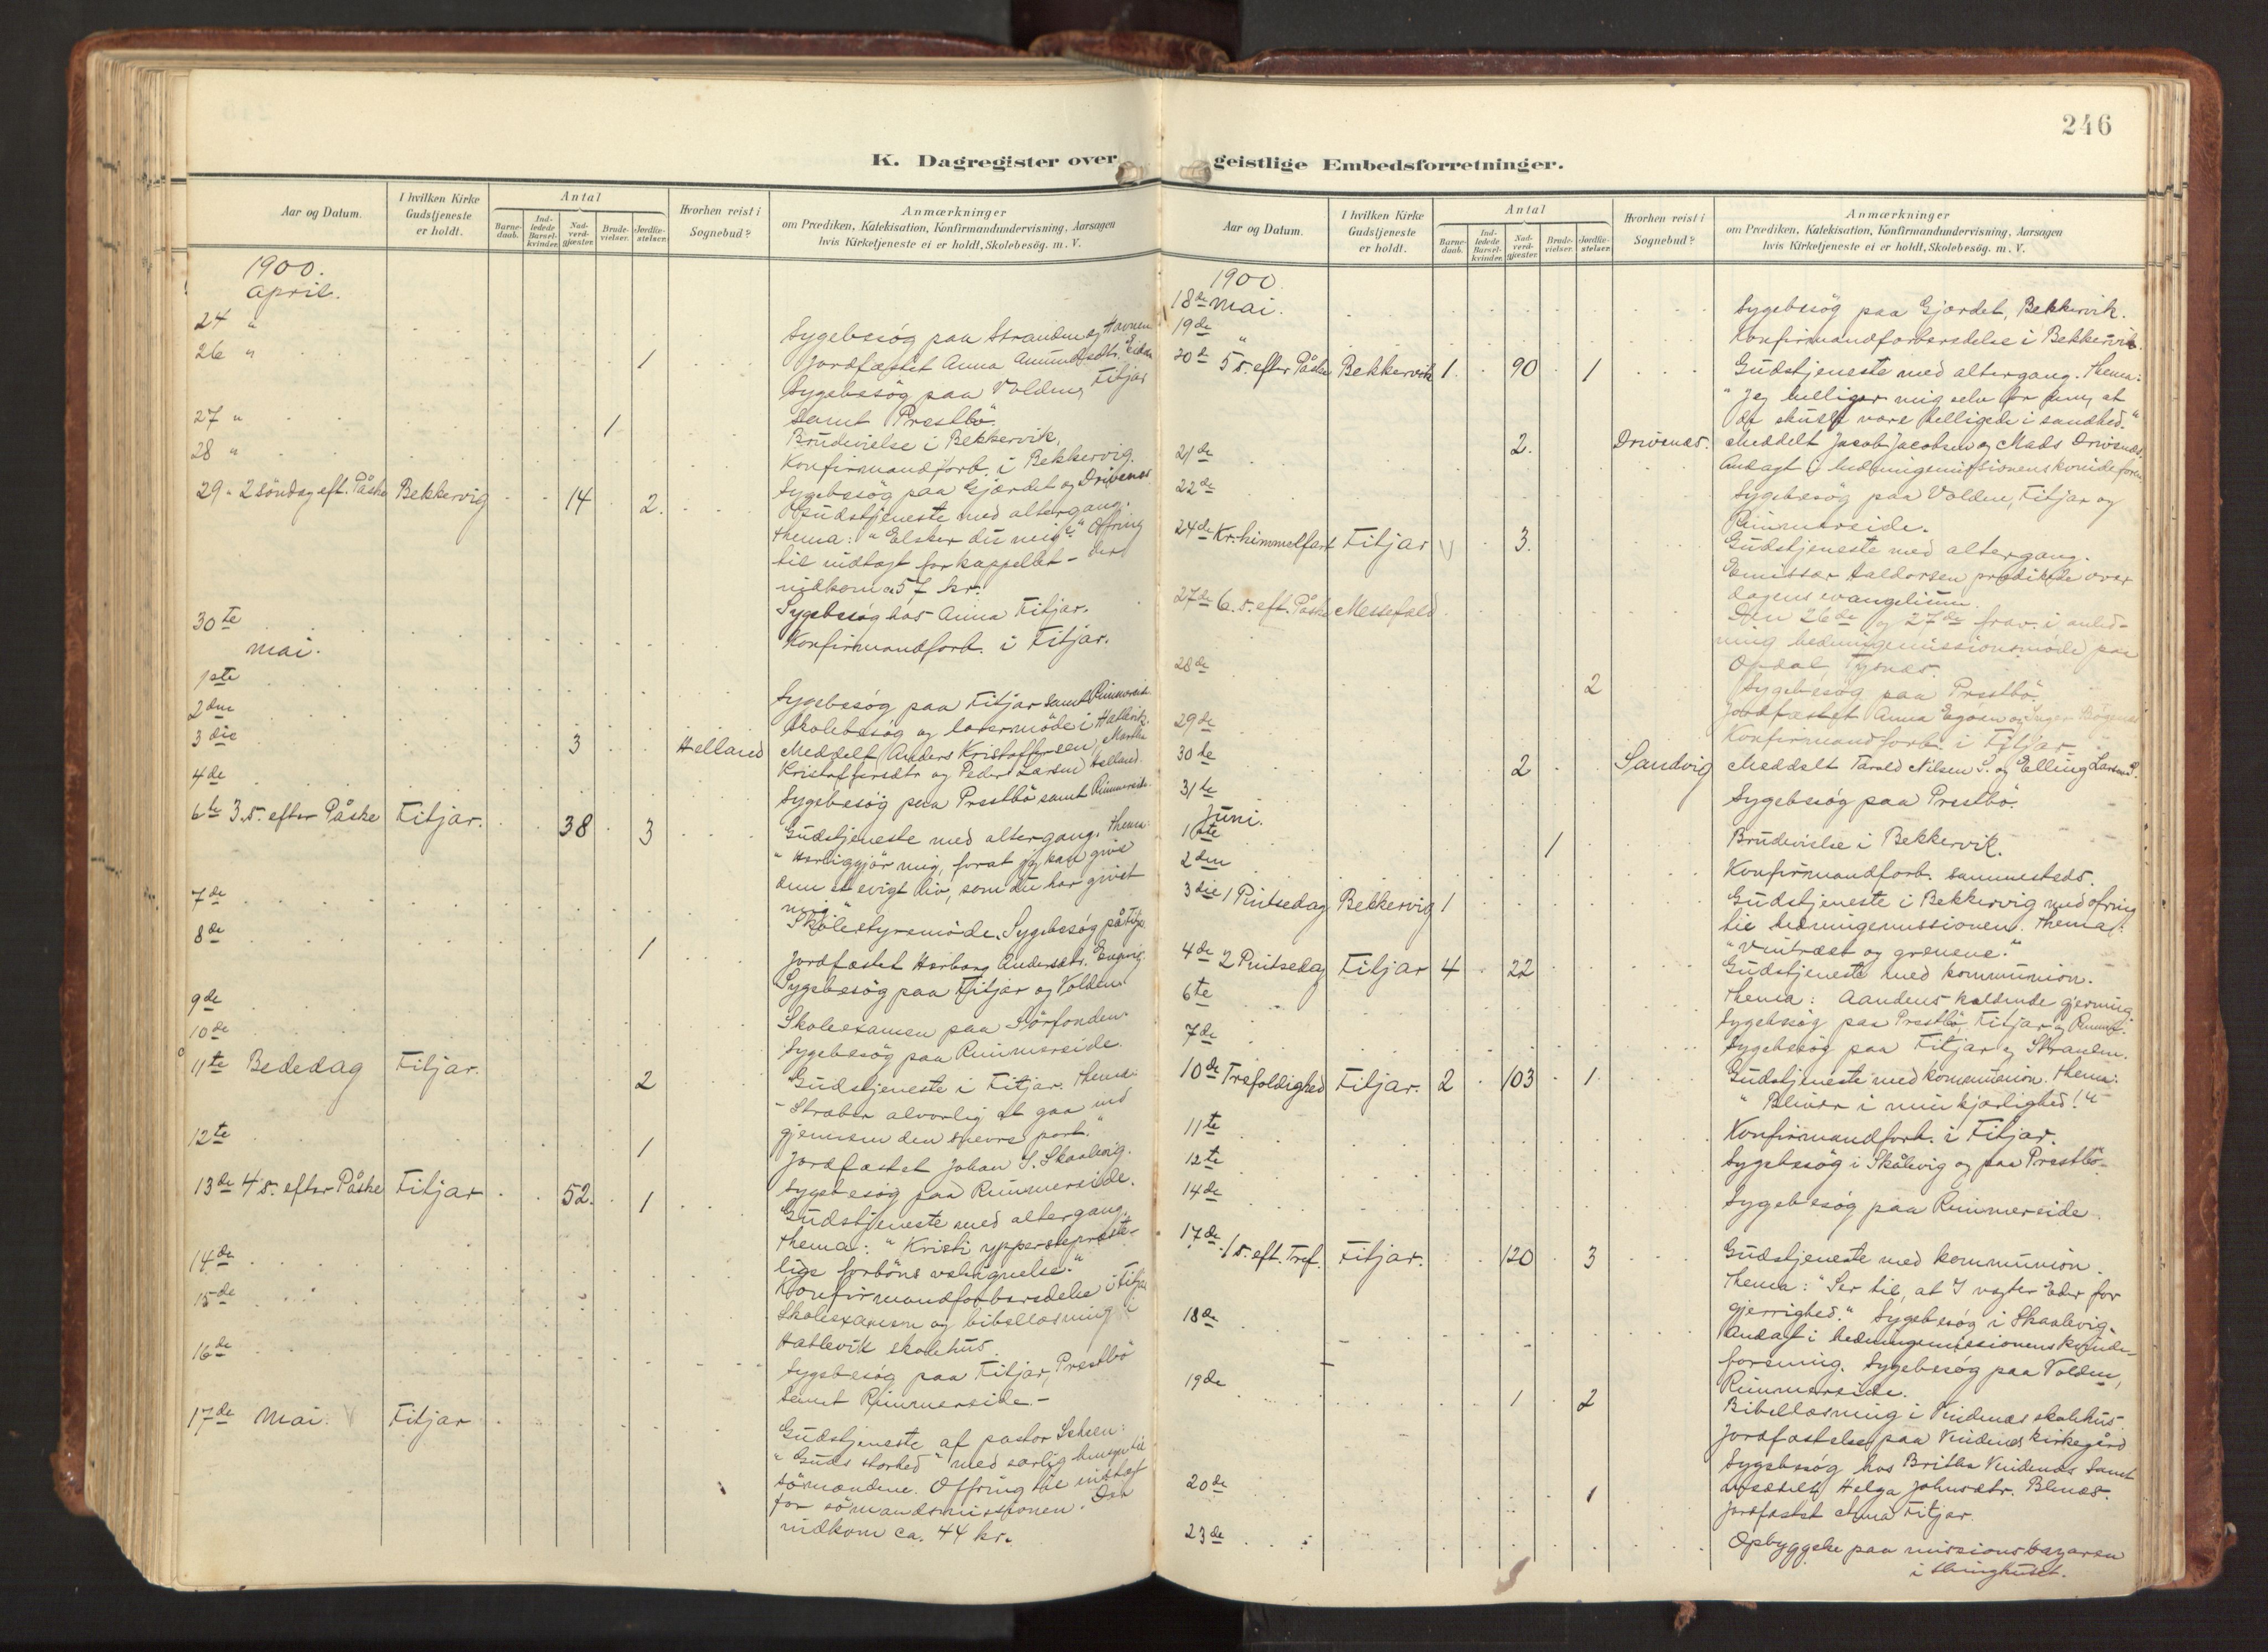 246
K. Dagregister over
Aar og Datum.
I hvilken Kirke Gudstjeneste er holdt.
Antal
Barne-daab.
Ind-ledede Barsel-kvinder.
Nad-verd-gjæster.
Brude-vielser.
Jordfæ-stelser.
Hvorhen reist i Sognebud?
Anmærkninger
om Prædiken, Katekisation, Konfirmandundervisning, Aarsagen
hvis Kirketjeneste ei er holdt, Skolebesög. m. V.
1900.
April.
24 " Sygebesög paa Stranden og Havnen
26 " 1 Jordfæstet Anna Amundsdtr.
Sygebesög paa Volden, Fitjar
samt Prestbö.
27 " 1 Brudevielse i Bekkervik.
28 " Konfirmandforb. i Bekkervig.
Sygebesög paa Gjærdet og Drivenes
29 " 2 söndag eft. Påske Bekkervig 14 2. Gudstjeneste med altergang.
Thema: "Elsker du mig?" Ofring
til indtægt for kappellet - der
indkom 57 kr.
30te Sygebesög hos Anna Fitjar.
Konfirmandforb. i Fitjar.
Mai.
1ste Sygebesög paa Fitjar samt Rimmereide
2den Skolebesög og lærermöde i Hatlevik.
3die 3 Helland Meddelt Anders Kristoffersen, Marthe
Kristoffersdtr og Peder Larsen Helland.
4de Sygebesög paa Prestbö samt Rimmereide.
6te 3. S. efter Påske Fitjar. 38 3 Gudstjeneste med altergang. Thema:
"Herliggjör mig, forat jeg kan give
dem et evigt liv, som du har givet
mig."
7de Skolestyremöde. Sygebesög på
8de 1 Jordfæstet Herborg Andersdtr. Engevig.
Sygebesög paa Fitjar og Volden
9de Skoleexamen paa Sörfonden.
10de Sygebesög paa Rimmereide.
11te Bededag Fitjar. 2 Gudstjeneste i Fitjar. Thema:
"Stræber alvorlig at gaa ind
gjennem den snevre port."
12te 1 Jordfæstet Johan S. Skaalevig.
Sygebesög paa Rimmereide.
13de 4 s. efter Påske Fitjar 52. 1 Gudstjeneste med altergang.
Thema: "Kristi yppersteprestelige
forböns velsignelse."
14de Konfirmandforberedelse i Fitjar
15de Skoleexamen og bibellæsning i
Hatlevik skolehus.
16de Sygebesög paa Fitjar, Prestbö
samt Rimmereide.-
17de Mai. Fitjar Gudstjeneste af pastor
"Guds storhed" med særlig hensyn til
sömændene. Offring til indtægt
for sömandsmissionen. Der
indkom ca. 44 kr.
geistlige Embedsforretninger.
Aar og Datum.
I hvilken Kirke Gudstjeneste er holdt.
Antal
Barne-daab.
Ind-ledede Barsel-kvinder.
Nad-verd-gjæster.
Brude-vielser.
Jordfæ-stelser.
Hvorhen reist i Sognebud?
Anmærkninger
om Prædiken, Katekisation, Konfirmandundervisning, Aarsagen
hvis Kirketjeneste ei er holdt, Skolebesög. m. V.
1900.
18de Mai. Sygebesög paa Gjærdet, Bekkervik.
19de " Konfirmandforberedelse i Bekkervik.
20de 5 s. efter Påske Bekkervik 1 90 1 Gudstjeneste med altergang. Thema:
"Jeg helliger mig selv for dem, at
de skulle være helligede i sandhed."
21de 2. Drivenæs. Meddelt Jacob Jacobsen og Mads Drivenæs.
Andagt i hedningemissionens kvindeforen.
22de Sygebesög paa Volden, Fitjar og
Rimmereide.
24de Kr. himmelfart Fitjar 3. Gudstjeneste med altergang.
Emissær Haldorsen prædikede over
dagens evangelium.
27de 6. s. eft. Påske Melsefald Den 26de og 27de frav. i anledning
hedningemissionsmöde paa
Opdal, Tysnæs.
28de Sygebesög paa Prestbö.
2 Jordfæstet Anna og Inger
29de Konfirmandforb. i Fitjar
30te 2 Sandvig Meddelt Tarald Nilsen S. og Elling Larsen S.
31te Sygebesög paa Prestbö.
Juni.
1ste 1 Brudevielse i Bekkervik.
2den Konfirmandforb. sammesteds.
3die 1 Pintsedag Bekkervig 1 Gudstjeneste i Bekkervig med ofring
til hedningemissionen. Thema:
"Vintræet og grenene."
4de 2 Pintsedag Fitjar 4 22 Gudstjeneste med kommunion.
Thema: Aandens kaldende gjerning
6te Sygebesög paa Prestbö, Fitjar og
7de Sygebesög paa Fitjar og Stranden.
10de Trefoldighed Fitjar. 2 103 1 Gudstjeneste med kommunion. Thema:
"Bliver i min kjærlighed!"
11te Konfirmandforb. i Fitjar.
12te Sygebesög i Skålevig og paa Prestbö
14de Sygebesög paa Rimmereide.
17de 1 s. eft. Tref. Fitjar. 120 3 Gudstjeneste med kommunion.
Thema: "Ser til, at I vogter Eder for
gjerrighed." Sygebesög i Skaalevig.
18de Andagt i hedningemissionens kvindeforening.
Sygebesög paa Volden,
Rimmereide.
19de 1 2 Bibellæsning i Vindenes skolehus
Jordfæstelse paa Vindenes kirkegård
Sygebesög hos Britha Vindenes samt
meddelt Helga Johnsdtr. Blenæs.
20de 1 Jordfæstet Anna Fitjar.
23de Opbyggelse paa missionsbazaren
i thinghuset.